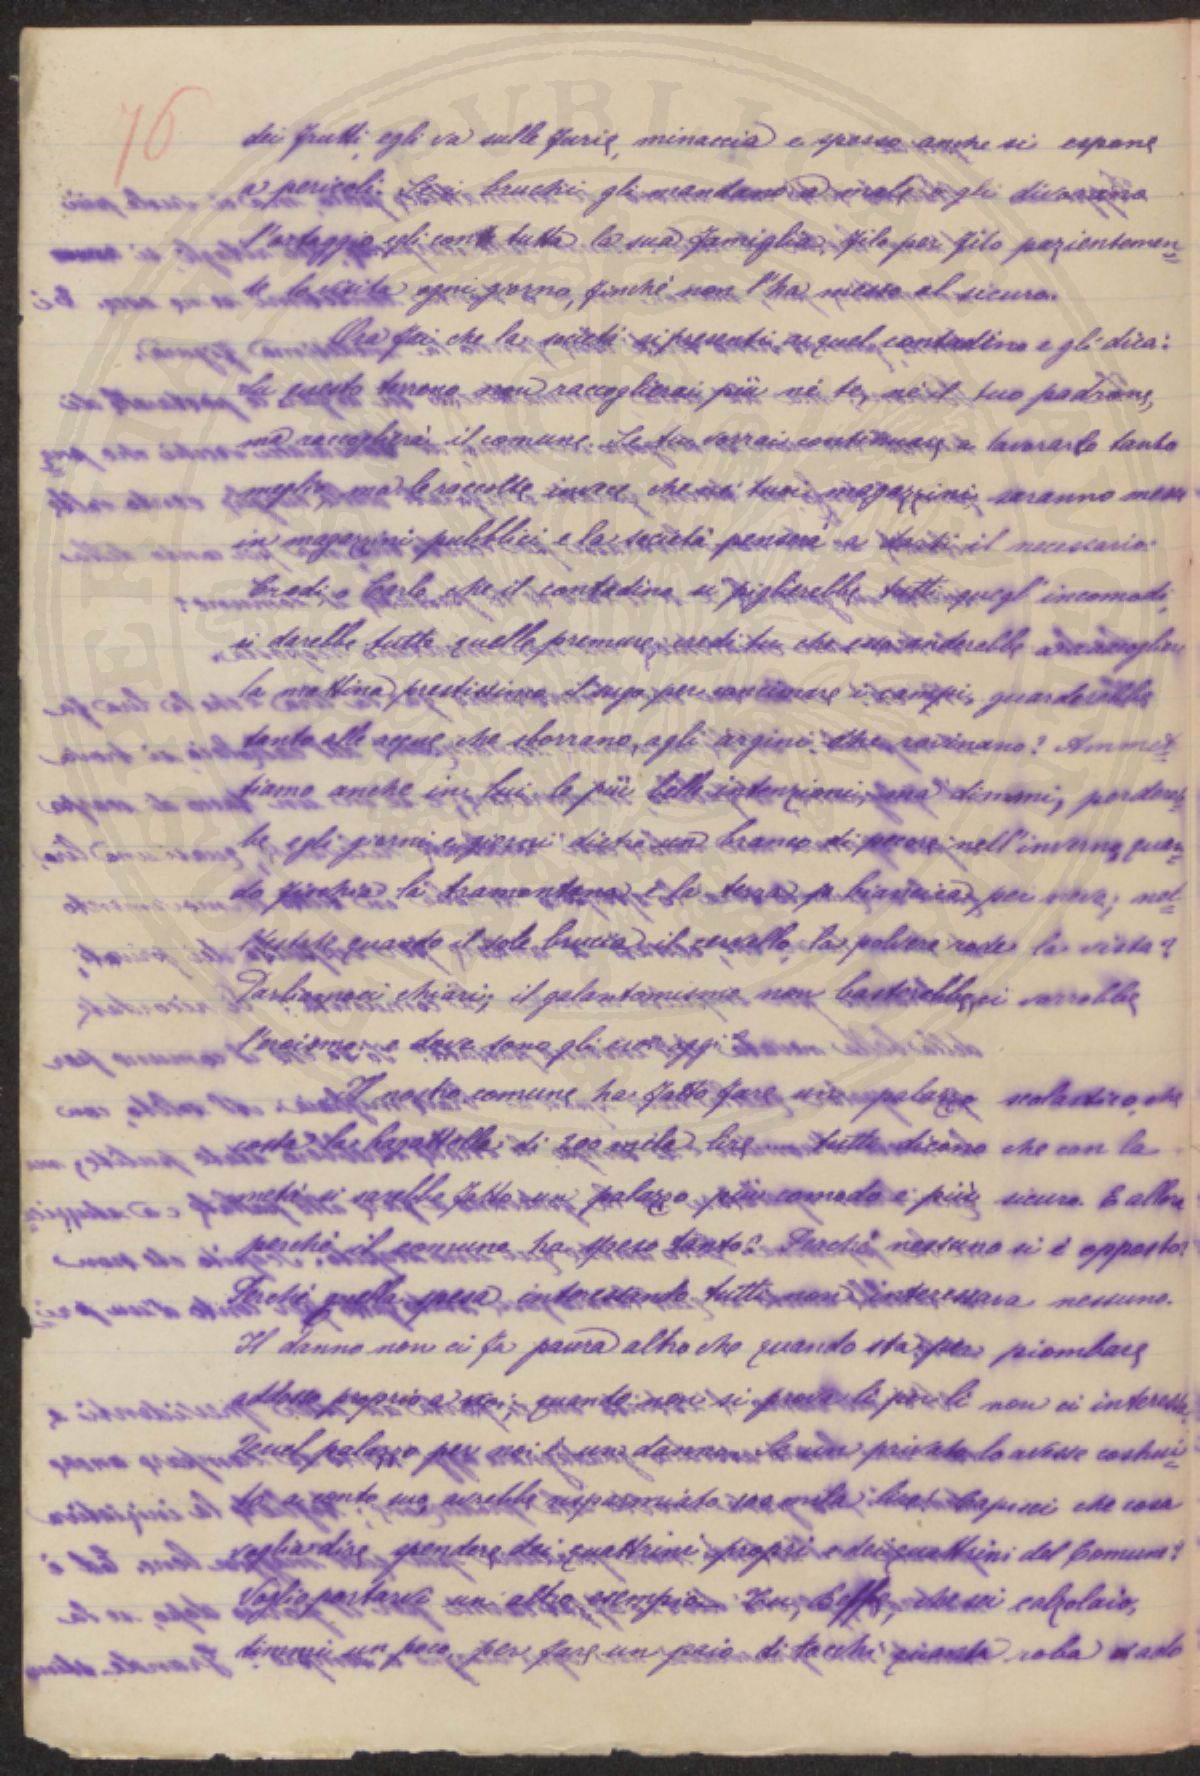 76
dei frutti, egli va sulle furie, minaccia e spesso anche si espone
a pericoli. Se i bruchi gli mandano a male o gli divorano
l'ortaggio, egli con tutta la sua famiglia, filo per filo pazientemen=
te lo visita ogni giorno, finché non l'ha messo al sicuro.
Ora fai che la società si presenti a quel contadino e gli dica:
da questo terreno non raccoglierai più nè te, nè il tuo padrone,
ma raccoglierà il comune. Se tu vorrai continuare a lavorarlo tanto
meglio, ma le raccolte invece che ne' tuoi magazzini, saranno messe
in magazzini pubblici e la società penserà a darti il necessario.
Credi, o Carlo che il contadino si piglierebbe tutti quegl'incomodi,
si darebbe tutte quelle premure, credi tu che esso anderebbe a raccogliere
la mattina prestissimo il sugo per concimare i campi, guarderebbe
tanto alle acque che sborrano, agli argini che rovinano? Ammet=
tiamo anche in lui le più belle intenzioni, ma dimmi, perdereb=
be egli giorni e giorni dietro un branco di pecore nell'inverno, quan=
do fischia la tramontana e la terra biancica per neve; nel=
l'estate quando il sole brucia il cervello, la polvere rode la vista?
Parliamoci chiari; il galantomismo non basterebbe, ci vorrebbe
l'eroismo; e dove sono gli eroi oggi?
Il nostro comune ha fatto fare un palazzo scolastico, che
costa la bagattella di 200 mila lire... tutti dicono che con la
metà si sarebbe fatto un palazzo più comodo e più sicuro. E allora
perché il comune ha speso tanto? Perché nessuno si è opposto?
Perché quella spesa interessando tutti non interessava nessuno.
Il danno non ci fa paura altro che quando sta per piombare
addosso proprio a noi; quando non si prova lì per lì non ci interessa.
Quel palazzo per noi è un danno. Se un privato lo avesse costrui=
to a conto suo avrebbe risparmiato 100 mila lire! Capisci che cosa
voglia dire spendere dei quattrini propri o dei quattrini del Comune?
Voglio portarvi un altro esempio. Tu, Beppe, che sei calzolaio,
dimmi un poco, per fare un paio di tacchi quanta roba